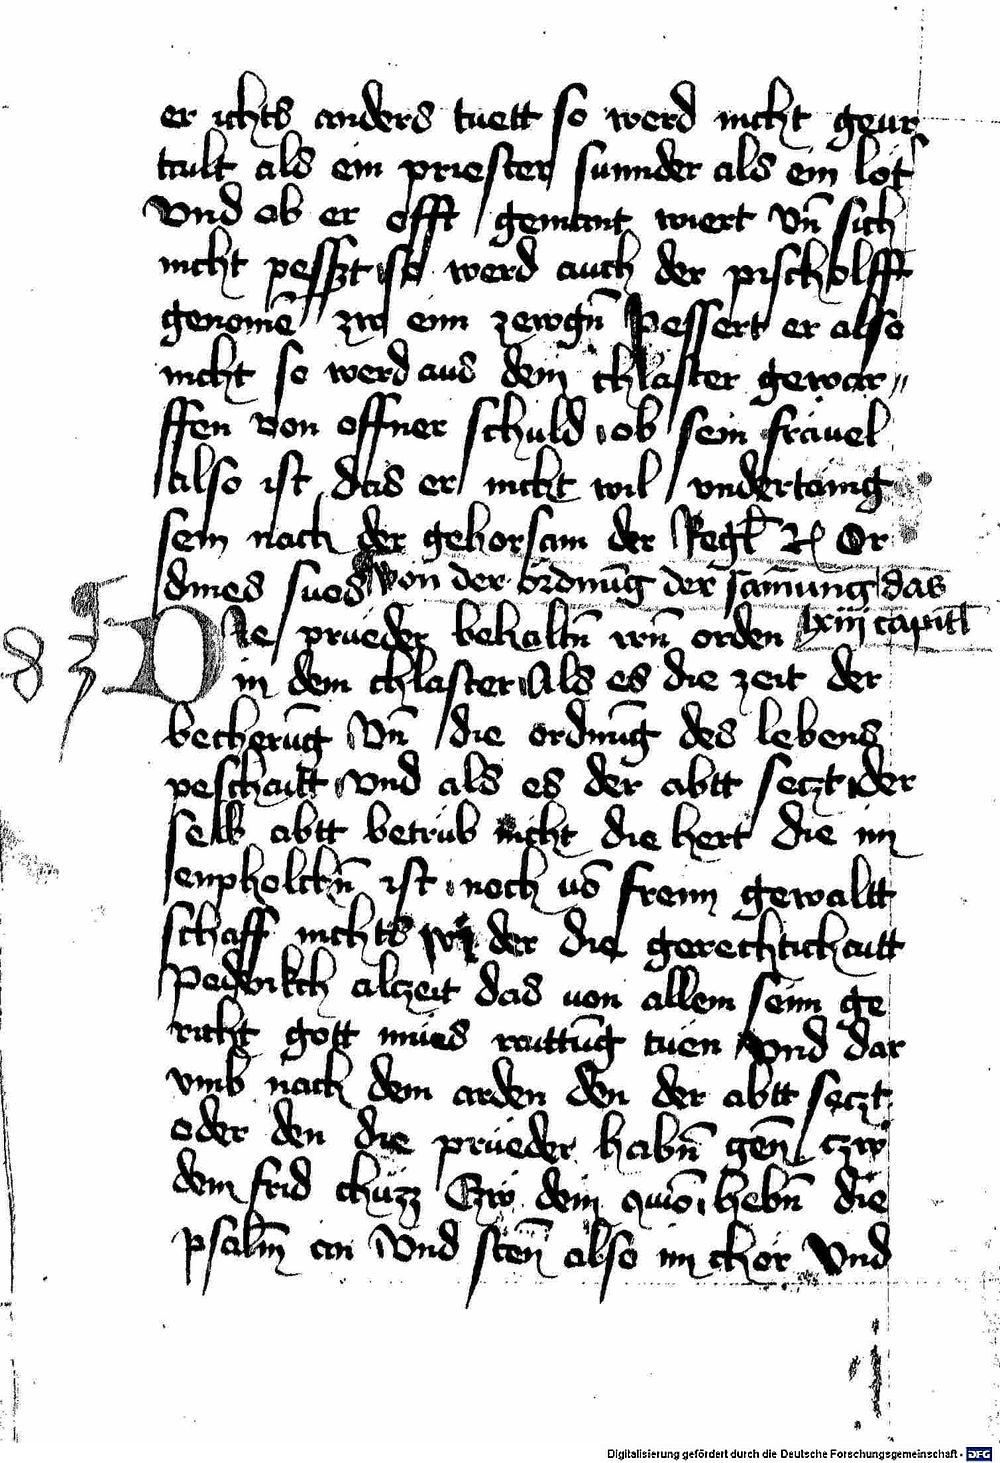 er ichts anders tuett so werd nicht geur
tailt als ein priester sunnder als ein lot
Vnd ob er offt gemant wiert Vn̄ sich
nicht pesszt so werd auch der pischolff
genomē zw eim zewgn̄ Pessert er also
nicht so werd aus dem chlaster gewar„
ffen von offner schuld ob sein frauel
also ist das er nicht wil vndertanig
sein nach der gehorsam der Regl Or
dines sues Von der ordnūg der samūng das
lxiij capitl
Die prueder behaltn̄ irn̄ orden
in dem chlaster Als es die zeit der
becherūg Vn̄ die ordnūg des lebens
peschaitt Vnd als es der abtt seczt der
selb abtt betrub nicht die hert die im
enpholchn̄ ist noch uō freim gewaltt
schaff nichts wider die gerechtichaitt
Pedenkch alczeit das uon allem seim ge
richt gott mues raittūg tuen Vnd dar
vmb nach dem arden den der abtt seczt
oder den die prueder habn̄ gen̄ czw
dem frid chuzz Czw dem hebn̄ die
psalm̄ an Vnd sten̄ also im chor Vnd
Digitalisierung gefördert durch die Deutsche Forschungsgemeinschaft - DFG